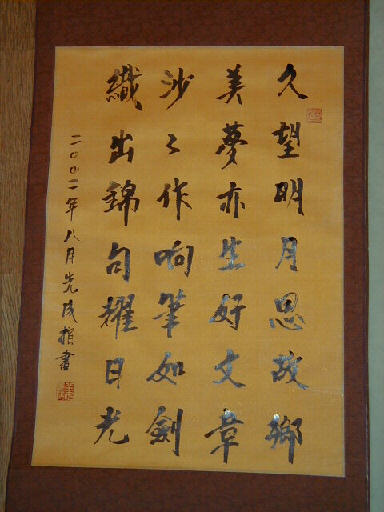 久望明月思故鄉
美夢亦生好文章
沙々作响筆如劍
織出錦句耀日光
二〇〇二年八月先成指書